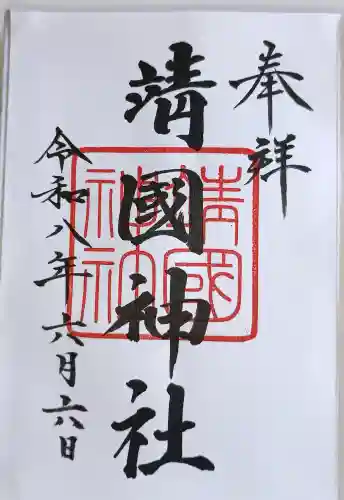 奉拝
靖國神社
令和八年六月六日
靖國
神社